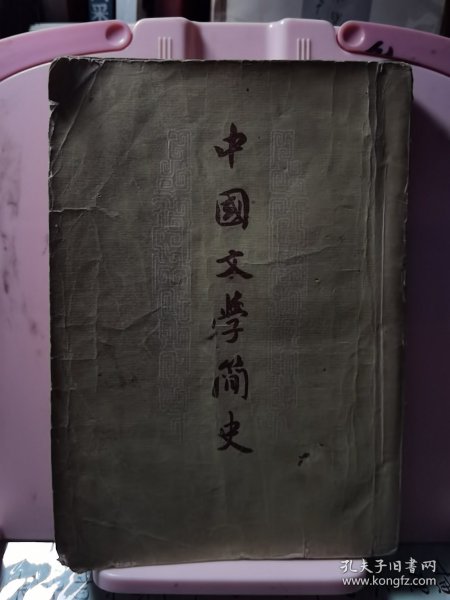 中國文学简史
孔夫子旧书网
www.kongfz.com